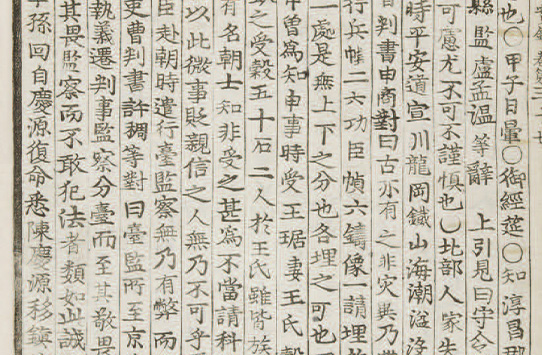 也○甲子日暈○御經筵○知淳昌郡
縣監盧孟溫等辭 上引見曰守令
可慮尤不可不謹慎也○北部人家失
時平安道宣川龍岡鐵山海潮溢
曹判書申商對曰古亦有之非災異乃
行兵幀二六功臣幀六鑄像一請埋
一處是無上下之分也各埋之可也
申曾爲知申事時受王琚妻王氏穀
之受穀五十石二人於王氏雖皆族
有名朝士知非受之甚爲不當請科
以此微事貶親信之人無乃不可乎
臣赴朝時遣行臺監察無乃有弊而
吏曹判書許稠等對曰臺監所至京
執義遷判事監察分臺而至其敬畏
其畏監察而不敢犯法者類如此誠
孫回自慶源復命悉陳慶源移鎭